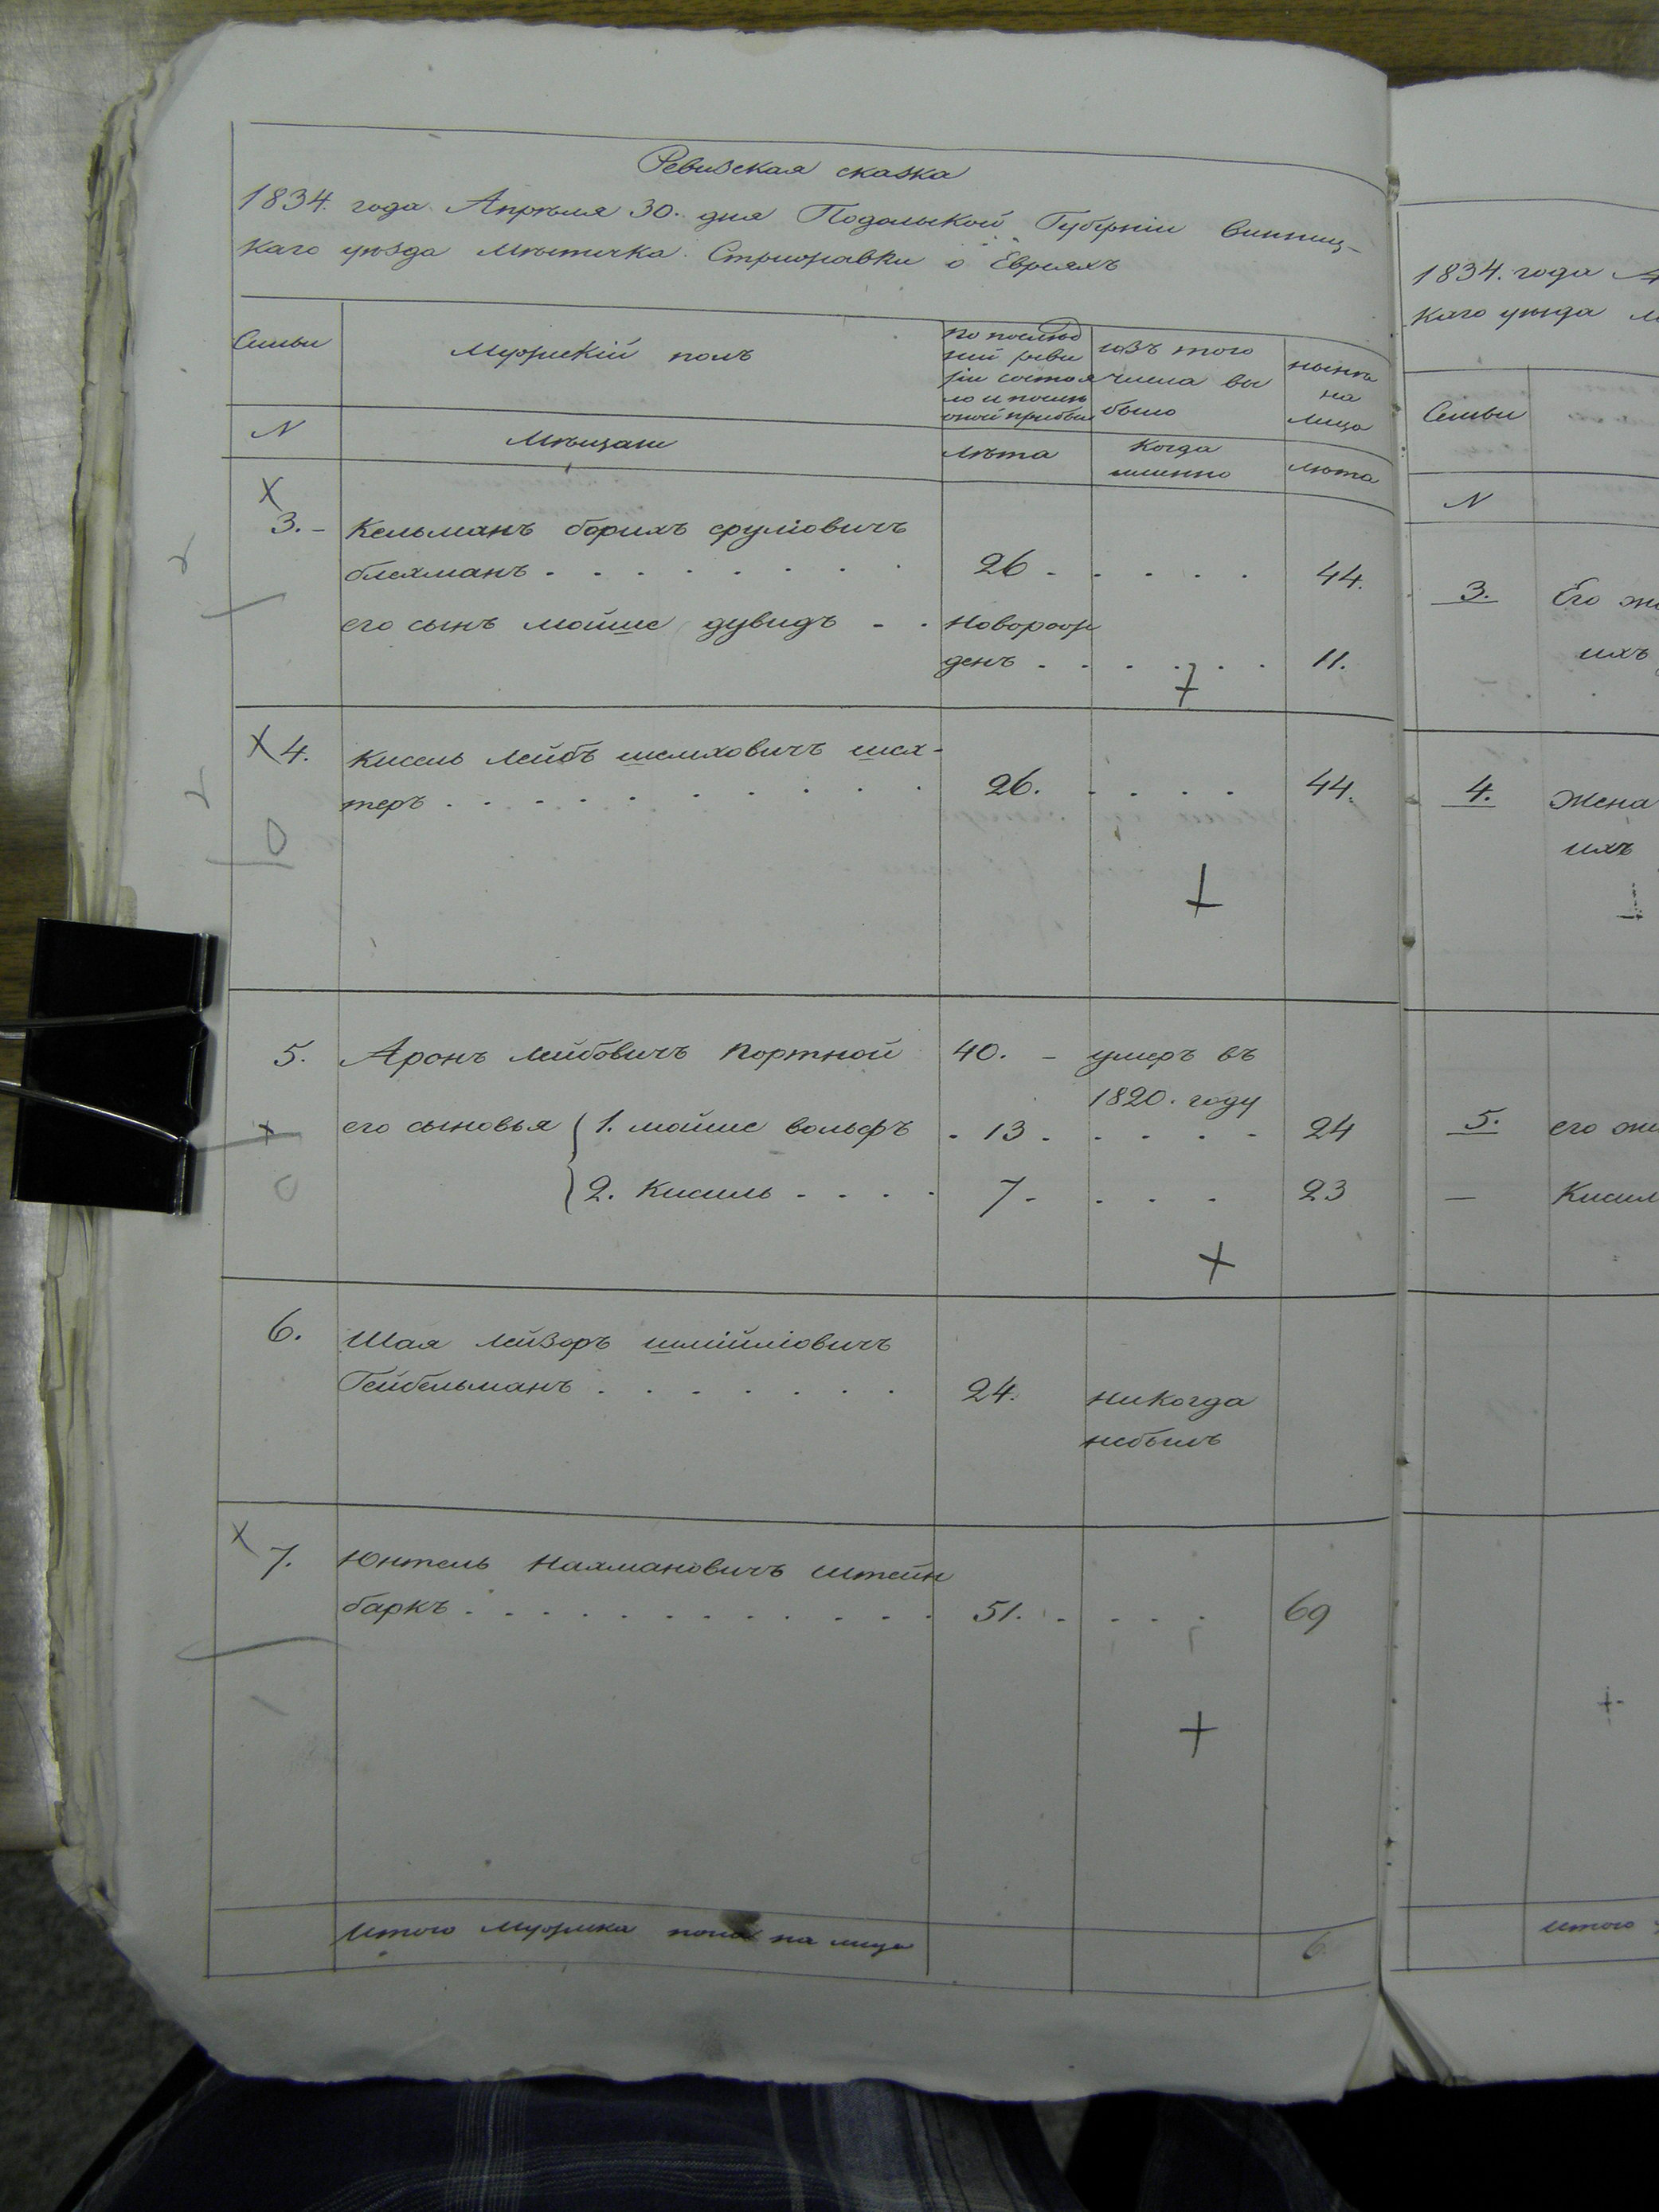 Ревизская сказка
1834. года Апрѣля 30. дня Подольской Губерніи Винниц-
каго уѣзда мѣстечка Стрижавки о Евреяхъ
Семьи
Мужескій полъ
по послѣд
ней реви
зіи состоя
ло и послѣ
оной прибы
изъ того
числа вы
было
нынѣ
на
лицо
N
Мѣщане
лѣта
Когда
именно
лѣта
3. - Кельманъ борихъ сруліовичъ
блехманъ . . . . . . . . 26 - . . . . 44.
его сынъ мойше дувидъ - . Новорож
денъ . . . . . . . 11.
4. Кисель Лейбъ шемховичъ шех-
теръ . . . . . . . . . . 26. . . . . 44.
5. Аронъ Лейбовичъ Портной 40. - умеръ въ
1820. году
его сыновья 1. мойше вольфъ . 13 . . . . - 24
2. Кисиль . . . . 7 - . . . 23
6. Шая Лейзоръ шмійліовичъ
Гейбельманъ . . . . . . . 24. никогда
небылъ
7. Юнтель Нахмановичъ Штейн
баркъ . . . . . . . . . . . . 51. . . . . 69
Итого Мужеска пола на лицо 6
1834. года А
каго уѣзда м
Семьи
N
3. Его же
ихъ
4. Жена
ихъ
5. его же
— Кисил
Итого